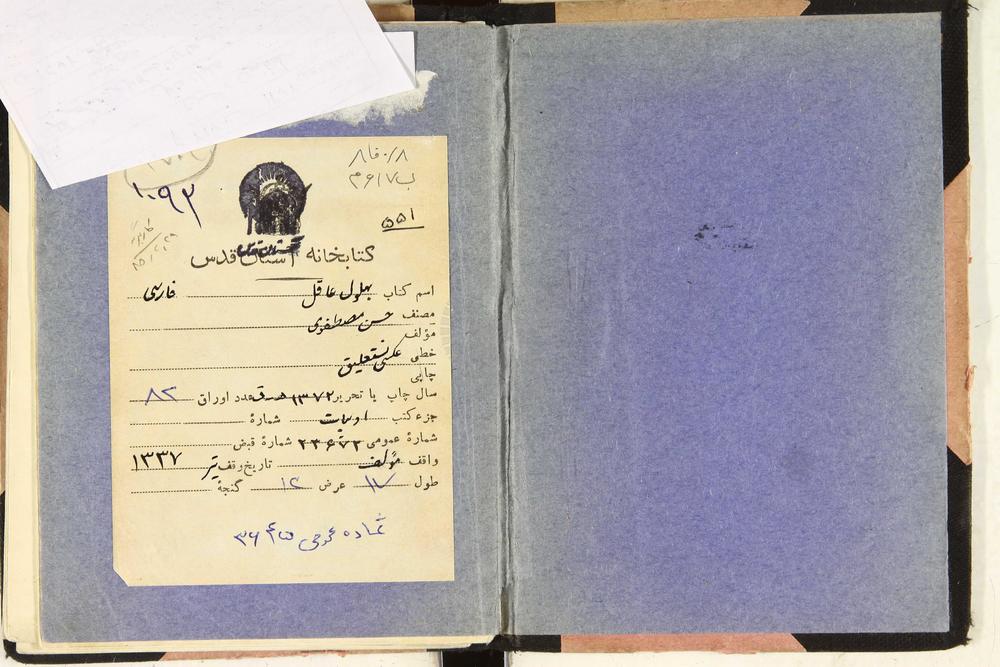 ۸/۰فا۸
ب۶۱۷م
۱۰۹۳
۵۵۱
کتابخانه آستان قدس
اسم کتاب بهلول عاقل فارسی
مصنف حسن مصطفوی
مؤلف
خطی عکسی نستعلیق
چاپی
سال چاپ یا تحریر ۱۳۷۲ عدد اوراق ۸۲
جزء کتب ادبیات شمارهٔ
شمارهٔ عمومی ۲۳۶۷۲ شمارهٔ قبض
واقف مؤلف تاریخ وقف تیر ۱۳۳۷
طول ۱۷ عرض ۱۲ گنجهٔ
شماره عمومی ۳۶۴۵